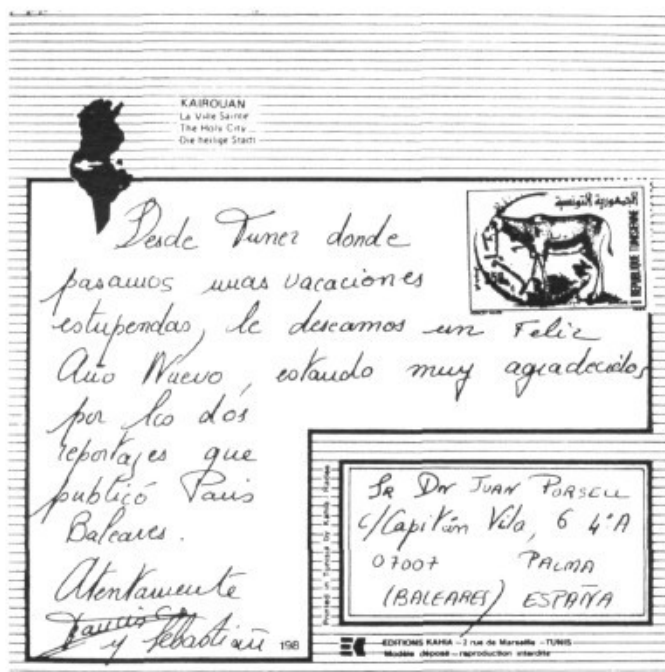 KAIROUAN
La Ville Sainte
The Holy City
Die heilige Stadt
الجمهورية التونسية
REPUBLIQUE TUNISIENNE
Desde Tunez donde
pasamos unas vacaciones
estupendas, le deseamos un Feliz
Año Nuevo, estando muy agradecidos
por los dos
reportajes que
publicó Paris
Baleares.
Atentamente
y Sebastián
198
Printed in Tunisia by Kahia
SR DN JUAN PORSELL
c/Capitán Vila, 6 4ºA
07007 PALMA
(BALEARES) ESPAÑA
EDITIONS KAHIA - 2 rue de Marseille - TUNIS
Modèle déposé - reproduction interdite